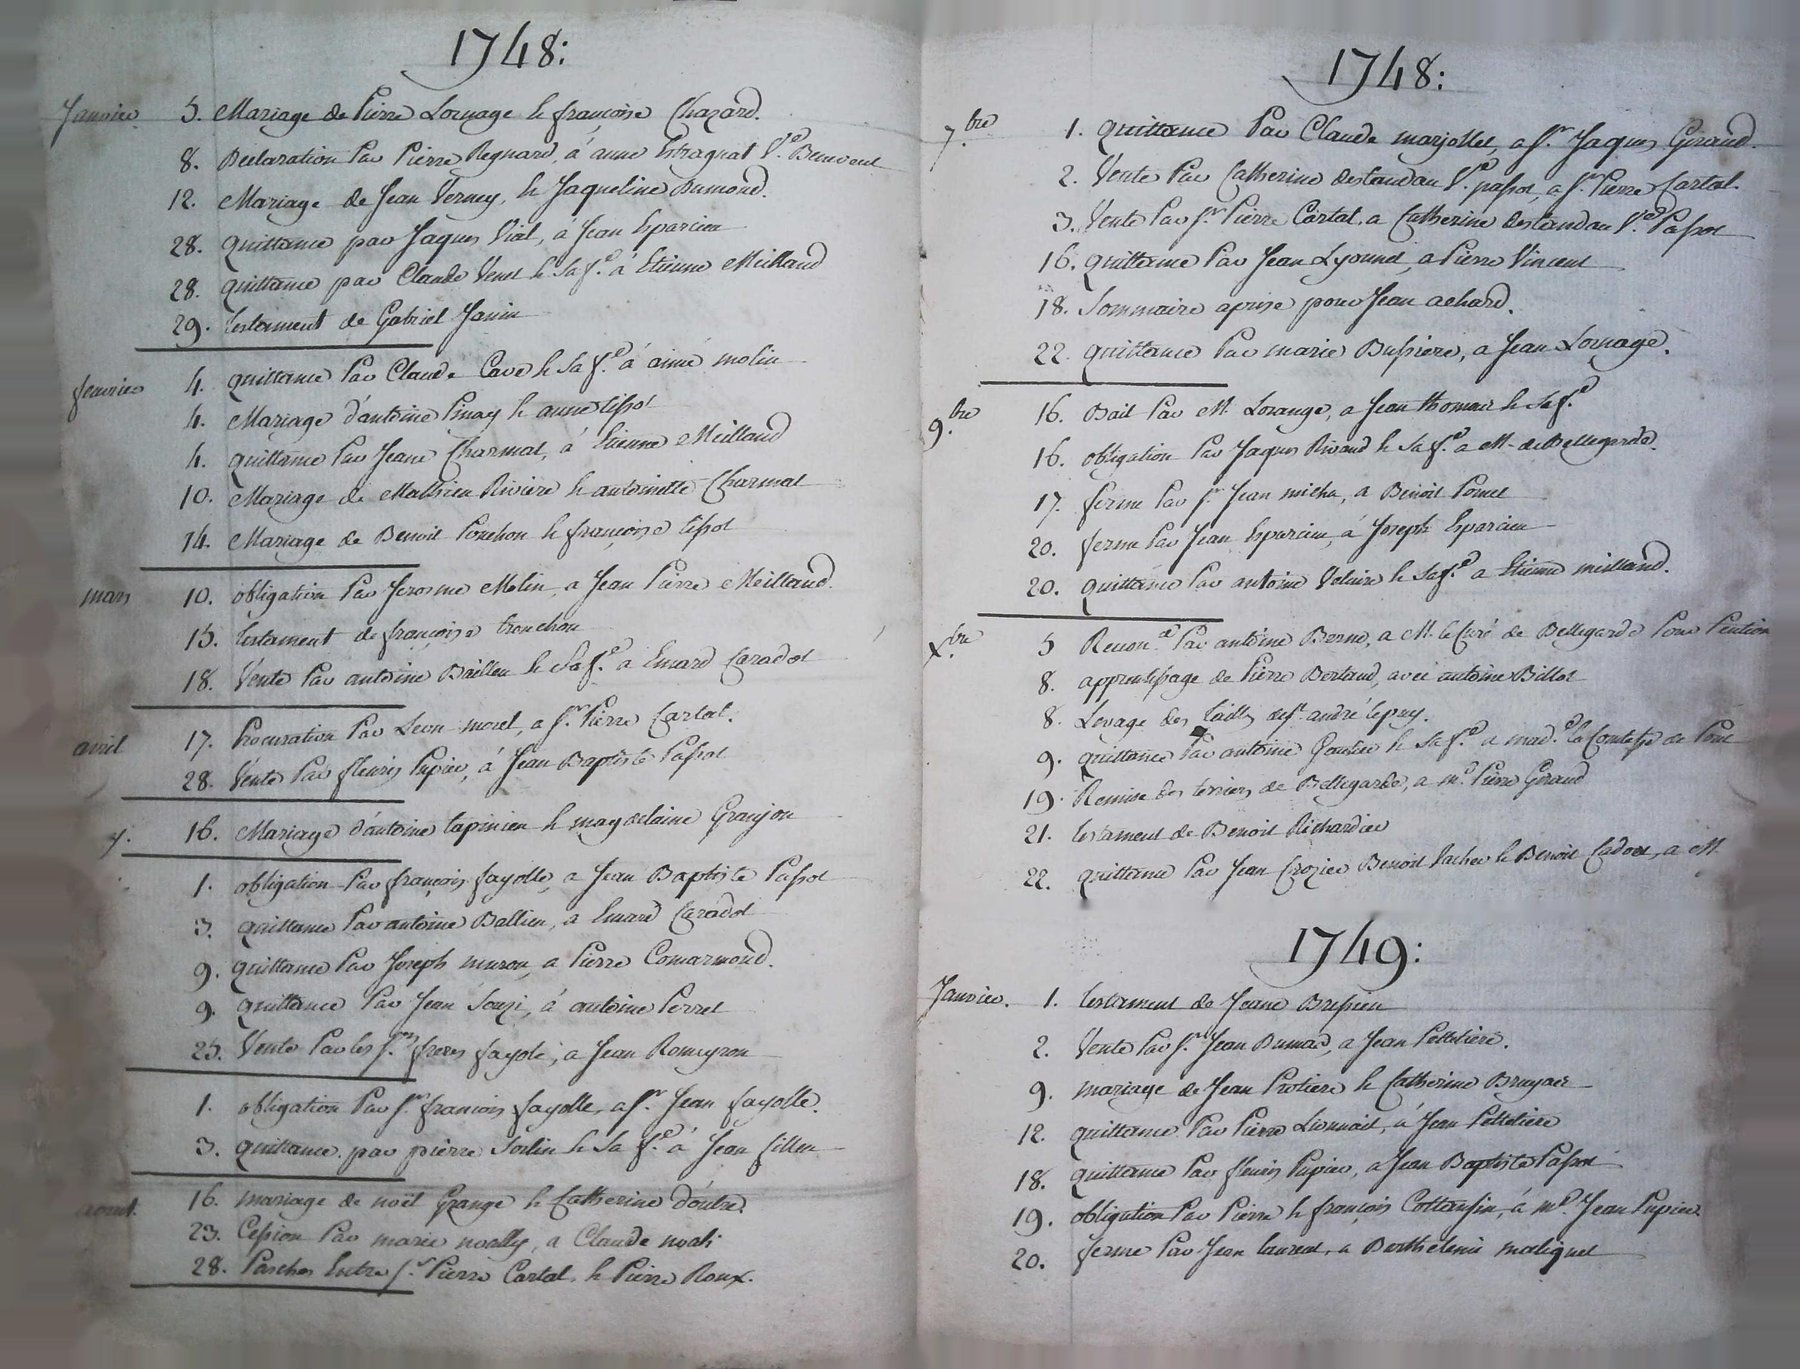 1748:
Janvier 5. Mariage de Pierre Lornage & françoise Chazard.
8. Declaration Par Pierre Regnard, á anne Estragnat V.e Benevent
12. Mariage de Jean Verney, & Jaqueline Dumond.
28. quittance par Jaques Vial, á Jean Esparcieu
28. quittance par Claude Venet & Sa f.e á Etienne Meilland
29. testament de Gabriel Janin
fevrier 4. quittance Par Claude Cave & Sa f.e á aimé molin
4. Mariage d'antoine Pinay & anne tissot
4. quittance Par Jeane Charmat, á Etienne Meilland
10. Mariage de Mathieu Riviere & antoinette Charmat
14. Mariage de Benoit Ponchon & françoise tissot
mars 10. obligation Par Jerosme Molin, a Jean Pierre Meilland.
15. testament de françoise tronchon
18. Vente Par antoine Baillieu & Sa f.e a Emard Caradot
avril 17. Procuration Par Leon morel, a s.r Pierre Cartal.
28. Vente Par fleuris Pupier, á Jean Baptiste Passot
y. 16. Mariage d'antoine tapinieu & magdelaine Granjon
1. obligation Par françois fayolle, a Jean Baptiste Passot
3. quittance Par antoine Ballieu, a Emard Caradot
9. quittance Par Joseph muron, a Pierre Comarmond.
9. quittance Par Jean Souzi, á antoine Perret
25. Vente Par les s.rs freres fayole, a Jean Romeyron
1. obligation Par s.r francois fayolle, a s.r Jean fayolle.
3. quittance par pierre & Sa f.e á Jean
aout. 16. mariage de noël Grange & Catherine d'outre.
23. Cession Par marie noally, a Claude noali
28. Pasches Entre s.r Pierre Cartal, & Pierre Roux.
1748:
7.bre 1. quittance Par Claude marjollet, a s.r Jaques Giraud.
2. Vente Par Catherine destandau V.e passot, a s.r Pierre Cartal.
3. Vente Par s.r Pierre Cartal, a Catherine destandau V.e Passot
16. quittance Par Jean Lyonnet, a Pierre Vincent
18. Sommaire aprise pour Jean achard.
22. quittance Par marie Bussiere, a Jean Lornage.
9.bre 16. Bail Par M. Lorange, a Jean thomas & Sa f.e
16. obligation Par Jaques Rivaud & Sa f.e a M. de Bellegarde.
17. ferme Par s.r Jean micha, a Benoit Poncet
20. ferme Par Jean Esparcieu, á Joseph Esparcieu
20. quittance Par antoine Veluire & Sa f.e a Etienne meilland.
x.bre 5 Reconn.ce Par antoine Berne, a M. le Curé de Bellegarde Pour Pention
8. apprentissage de Pierre Bertaud, avec antoine Billot
8. Levage des tailles de s.t andré lepuy.
9. quittance Par antoine Gontier & Sa f.e a mad.e la Contesse de Pons
19. Remise des terriers de Bellegarde, a m.e Pierre Giraud
21. testament de Benoit Richardier
22. quittance Par Jean Crozier Benoit Vacher & Benoit Cadout, a M
1749:
Janvier. 1. testament de Jeane Bressieu
2. Vente Par s.r Jean Dumas, a Jean Pelletiere.
9. mariage de Jean Protiere & Catherine Bruyas
12. quittance Par Pierre Lionnait, á Jean Pelletiere
18. quittance Par fleuris Pupier, a Jean Baptiste Passot
19. obligation Par Pierre & françois Cottansin, á m.e Jean Pupier.
20. ferme Par Jean laurent, a Barthelemi maliquet